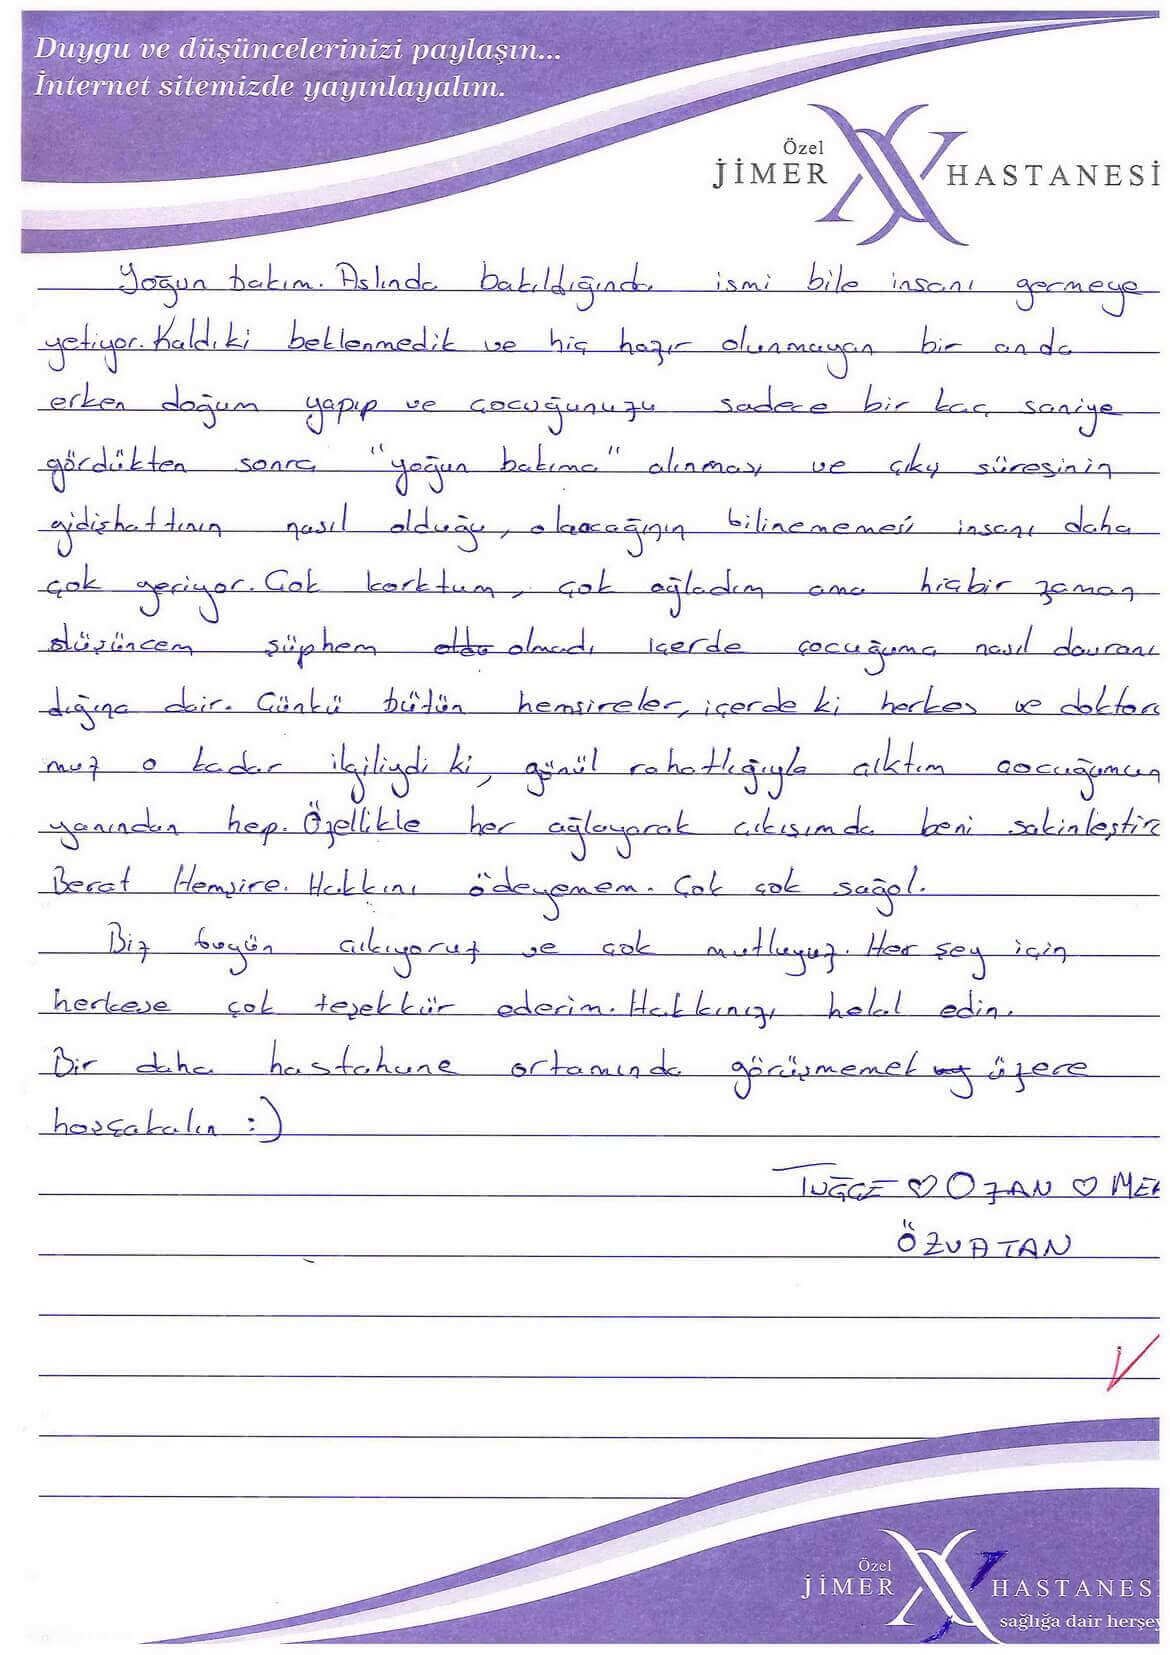 Duygu ve düşüncelerinizi paylaşın...
İnternet sitemizde yayınlayalım.
Özel
JİMER HASTANESİ
Yoğun bakım. Aslında bakıldığında ismi bile insanı germeye
yetiyor. Kaldıki beklenmedik ve hiç hazır olunmayan bir anda
erken doğum yapıp ve çocuğunuzu sadece bir kaç saniye
gördükten sonra "yoğun bakıma" alınması ve çıkış süresinin
gidişhattının nasıl olduğu, olacağının bilinememesi insanı daha
çok geriyor. Çok korktum, çok ağladım ama hiçbir zaman
düşüncem şüphem olmadı içerde çocuğuma nasıl davranı
dığına dair. Çünkü bütün hemşireler, içerde ki herkes ve doktoru
muz o kadar ilgiliydi ki, gönül rahatlığıyla çıktım çocuğumun
yanından hep. Özellikle her ağlayarak çıkışımda beni sakinleştir
Berat Hemşire. Hakkını ödeyemem. Çok çok sağol.
Biz bugün çıkıyoruz ve çok mutluyuz. Her şey için
herkese çok teşekkür ederim. Hakkınızı helal edin.
Bir daha hastahane ortamında görüşmemek üzere
hoşçakalın :)
TUĞÇE ♡ OZAN ♡ ME
ÖZVATAN
Özel
JİMER HASTANES
sağlığa dair herşey